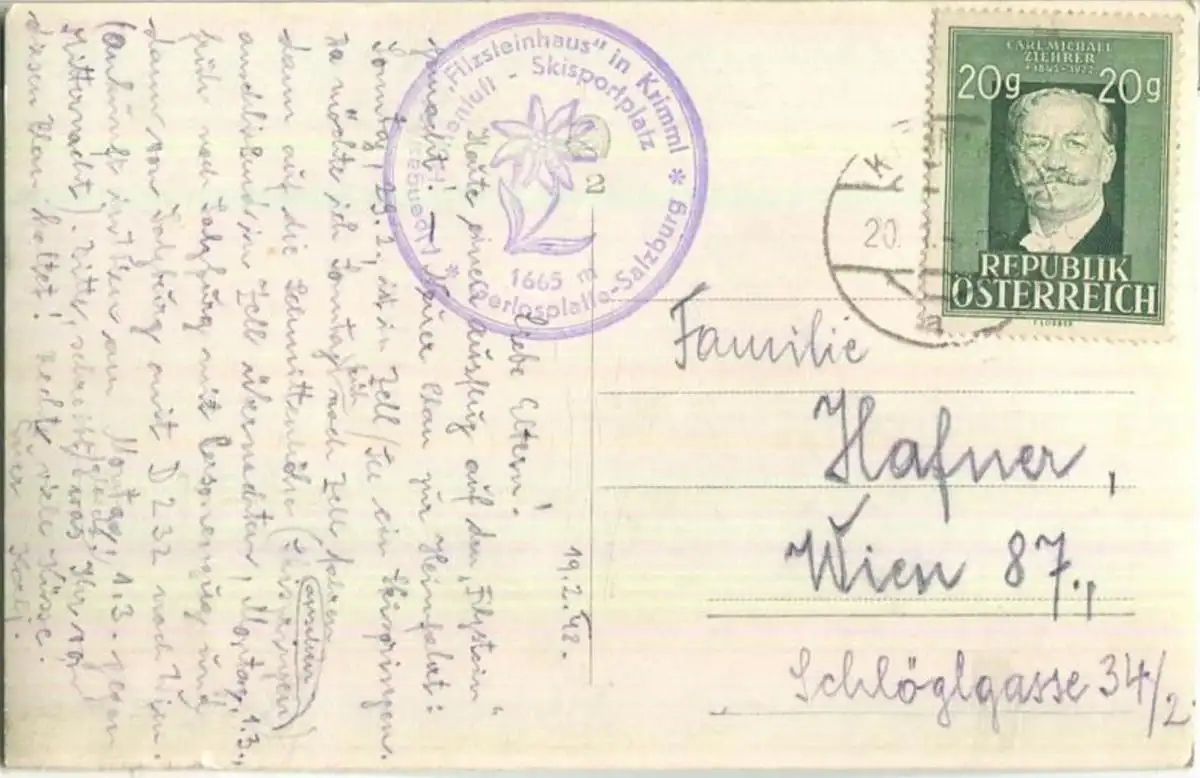 CARL MICHAEL
ZIEHRER
1843-1922
20g 20g
REPUBLIK
ÖSTERREICH
20.
„Filzsteinhaus" in Krimml * Gerlosplatte-Salzburg *
Skisportplatz
1665 m
19.2.48.
Liebe Eltern!
Heute einen Ausflug auf den „Filzstein"
gemacht! — Neuer Plan zur Heimfahrt:
Sonntag, 29.2., ist in Zell/See ein Skispringen.
Da möchte ich Sonntag früh nach Zell fahren
dann auf die Schmittenhöhe (Skispringen ansehen)
anschließend in Zell übernachten, Montag, 1.3.,
früh nach Salzburg mit Personenzug und
dann von Salzburg mit D 232 nach Wien.
(Ankunft in Wien am Montag, 1.3. gegen
Mitternacht). Bitte, schreibt gleich, was Ihr von
diesem Plan haltet! Recht viele Küsse.
Euer
Familie
Hafner,
Wien 87.,
Schlöglgasse 34/2.